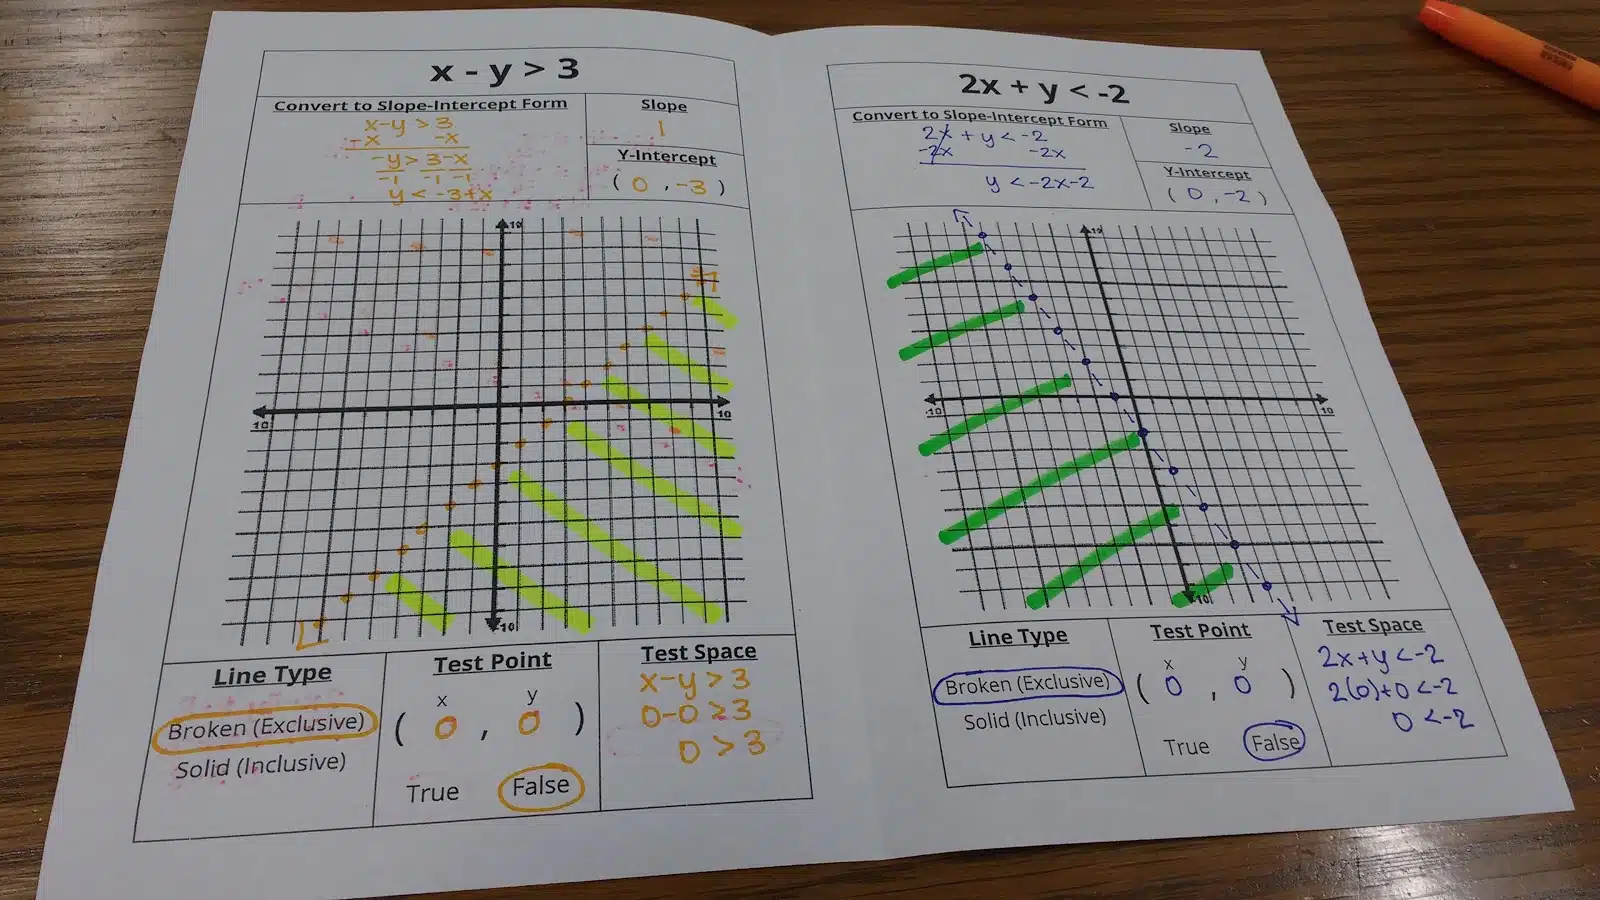 x - y > 3
Convert to Slope-Intercept Form
x-y > 3
-x -x
-y > 3-x
-1 -1 -1
y < -3+x
Slope
1
Y-Intercept
( 0 , -3 )
10
10
10
-10
Line Type
Broken (Exclusive)
Solid (Inclusive)
Test Point
x y
( 0 , 0 )
True False
Test Space
x-y > 3
0-0 ≥ 3
0 > 3
2x + y < -2
Convert to Slope-Intercept Form
2x + y < -2
-2x -2x
y < -2x-2
Slope
-2
Y-Intercept
( 0 , -2 )
10
-10
10
-10
Line Type
Broken (Exclusive)
Solid (Inclusive)
Test Point
x y
( 0 , 0 )
True False
Test Space
2x+y <-2
2(0)+0 <-2
0 <-2